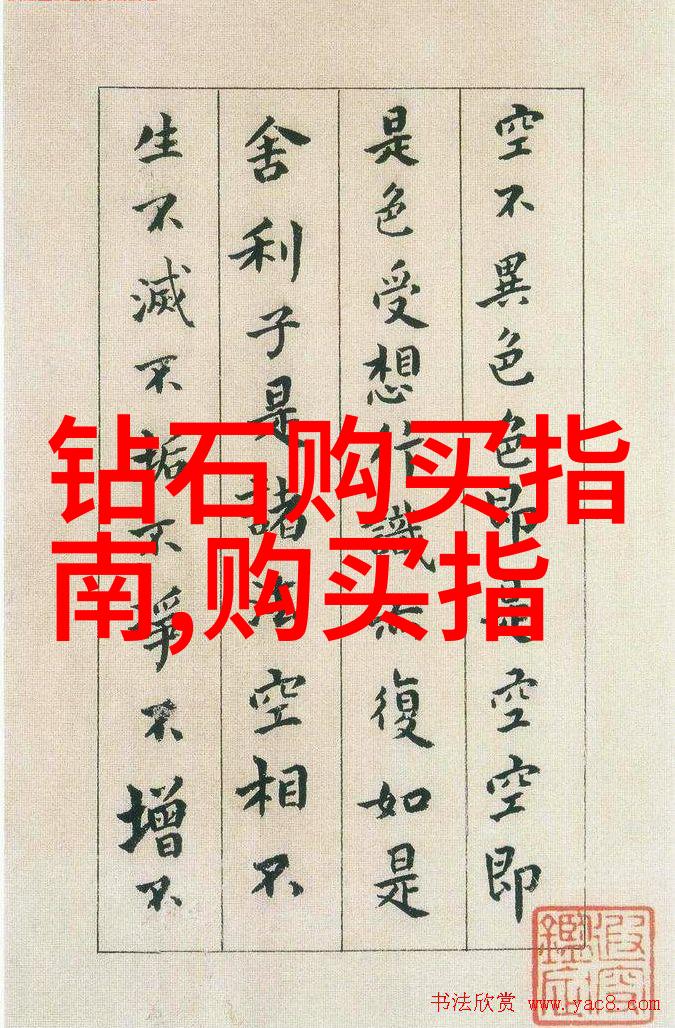 空不異色色即是空空即
是色受想行識亦復如是
舍利子是諸法空相不
生不滅不垢不淨不增不
钻石购买指
南,购买指
书法欣赏 www.yac8.com